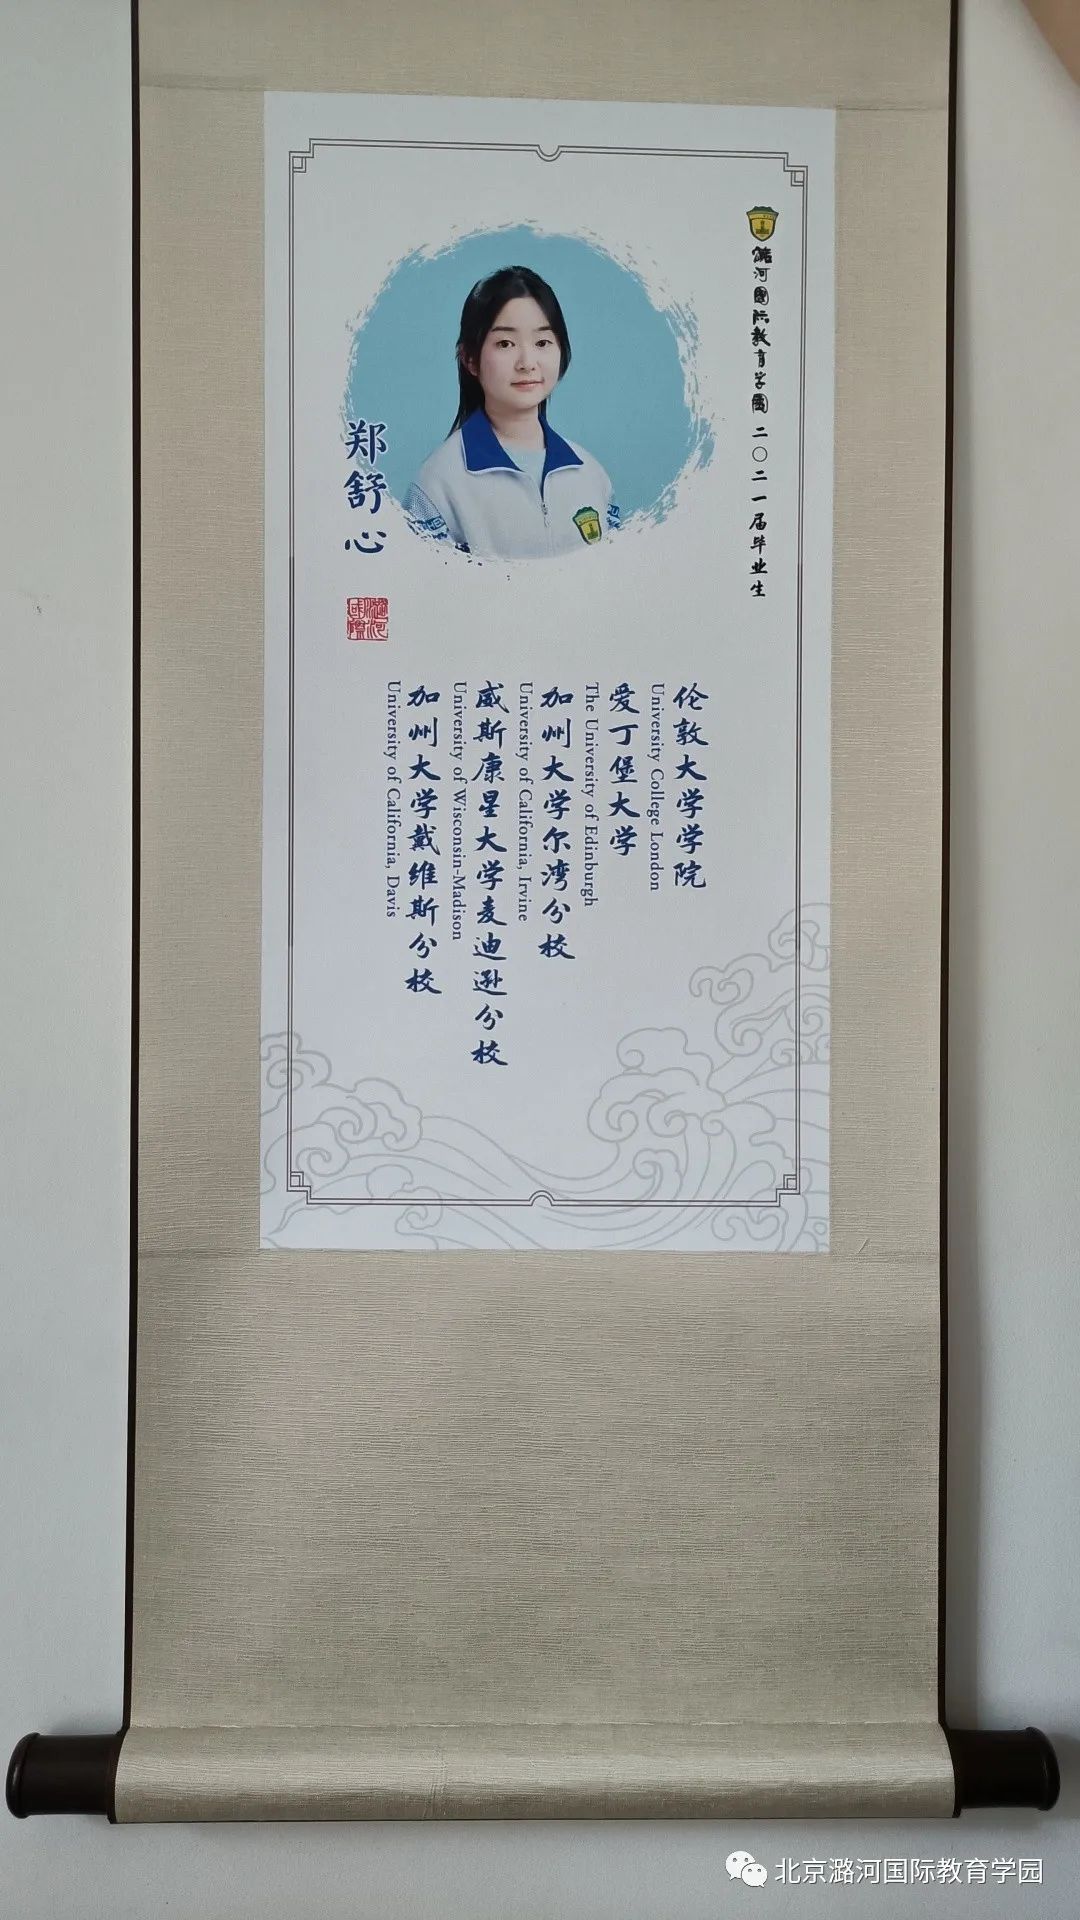 潞河國际教育学園 二〇二一届毕业生
郑舒心
潞河國際
伦敦大学学院
University College London
爱丁堡大学
The University of Edinburgh
加州大学尔湾分校
University of California, Irvine
威斯康星大学麦迪逊分校
University of Wisconsin-Madison
加州大学戴维斯分校
University of California, Davis
北京潞河国际教育学园